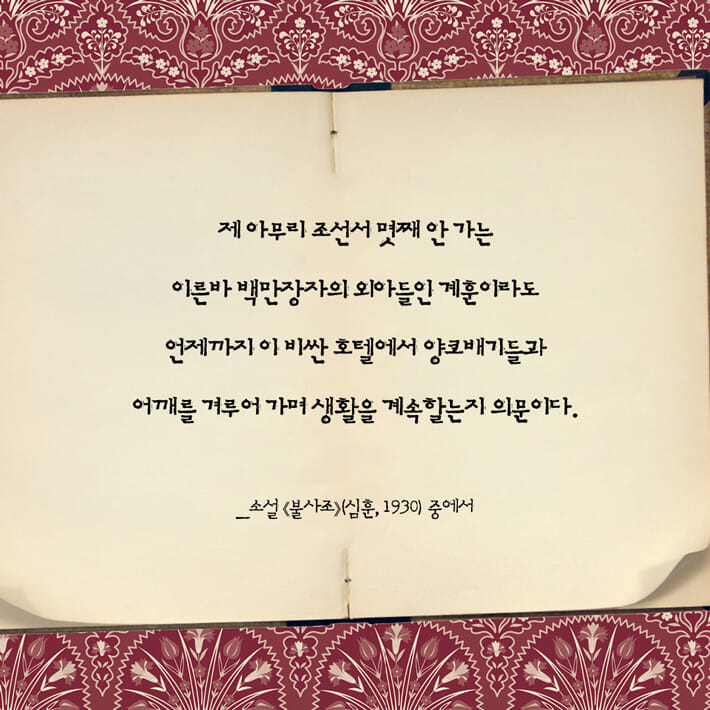 제 아무리 조선서 몇째 안 가는
이른바 백만장자의 외아들인 계훈이라도
언제까지 이 비싼 호텔에서 양코배기들과
어깨를 겨루어 가며 생활을 계속할는지 의문이다.
_소설 《불사조》(심훈, 1930) 중에서